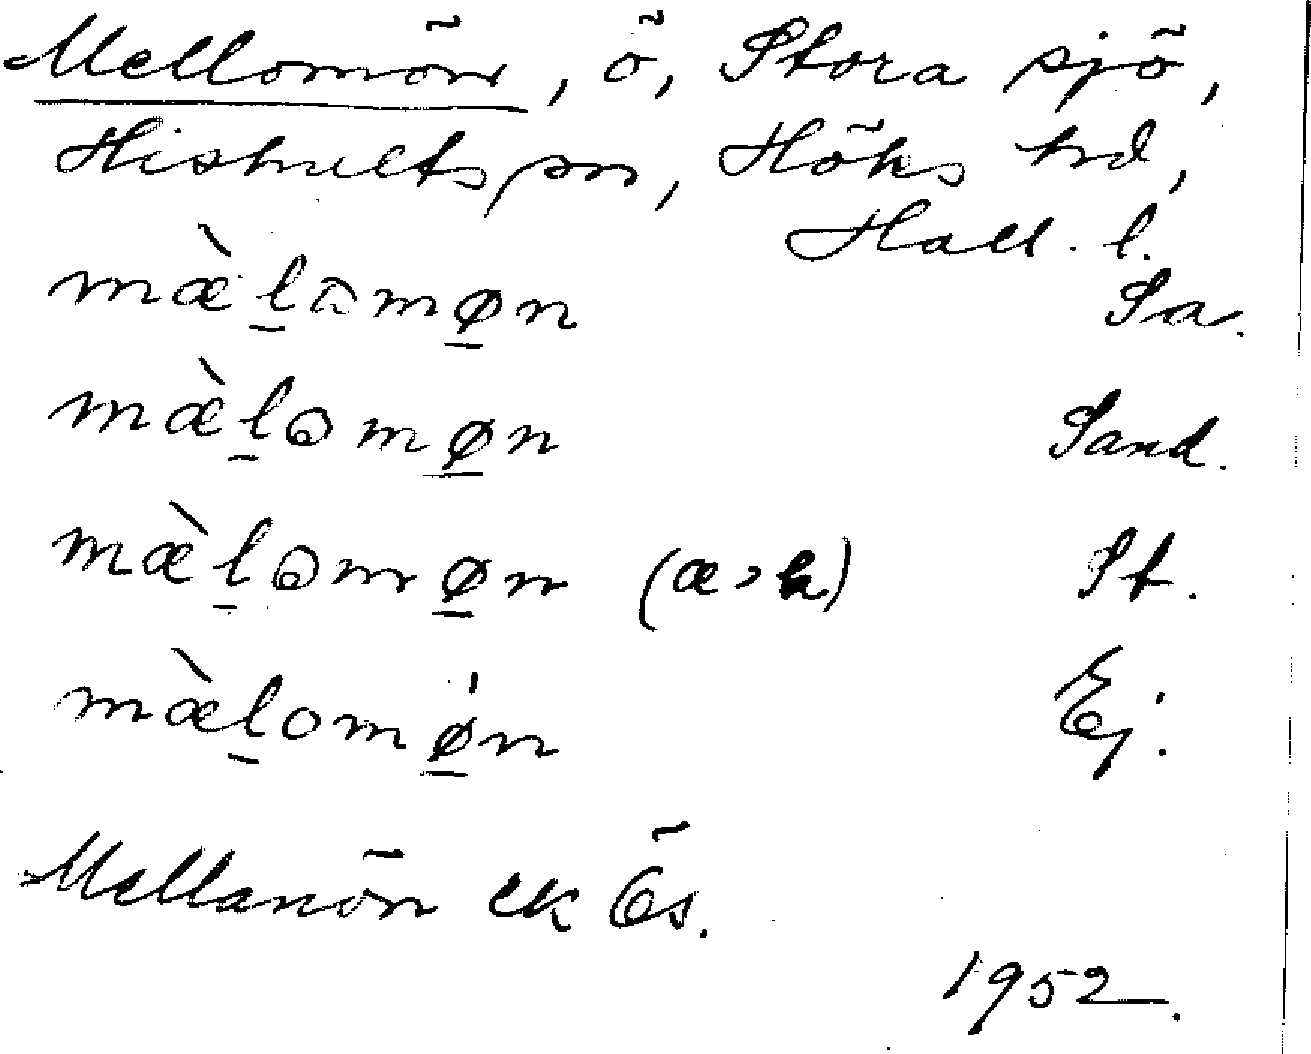 Mellomön, ö, Stora sjö,
Hishults sn, Höks hd,
Hall. l.
mæ̀l̠ɑmø̠n Sa.
mæ̀l̠omø̠n Sand.
mæ̀l̠omø̠n (æ>a) St.
mæ̀l̠omǿ̠n Ej.
Mellanön ek Ös.
1952.